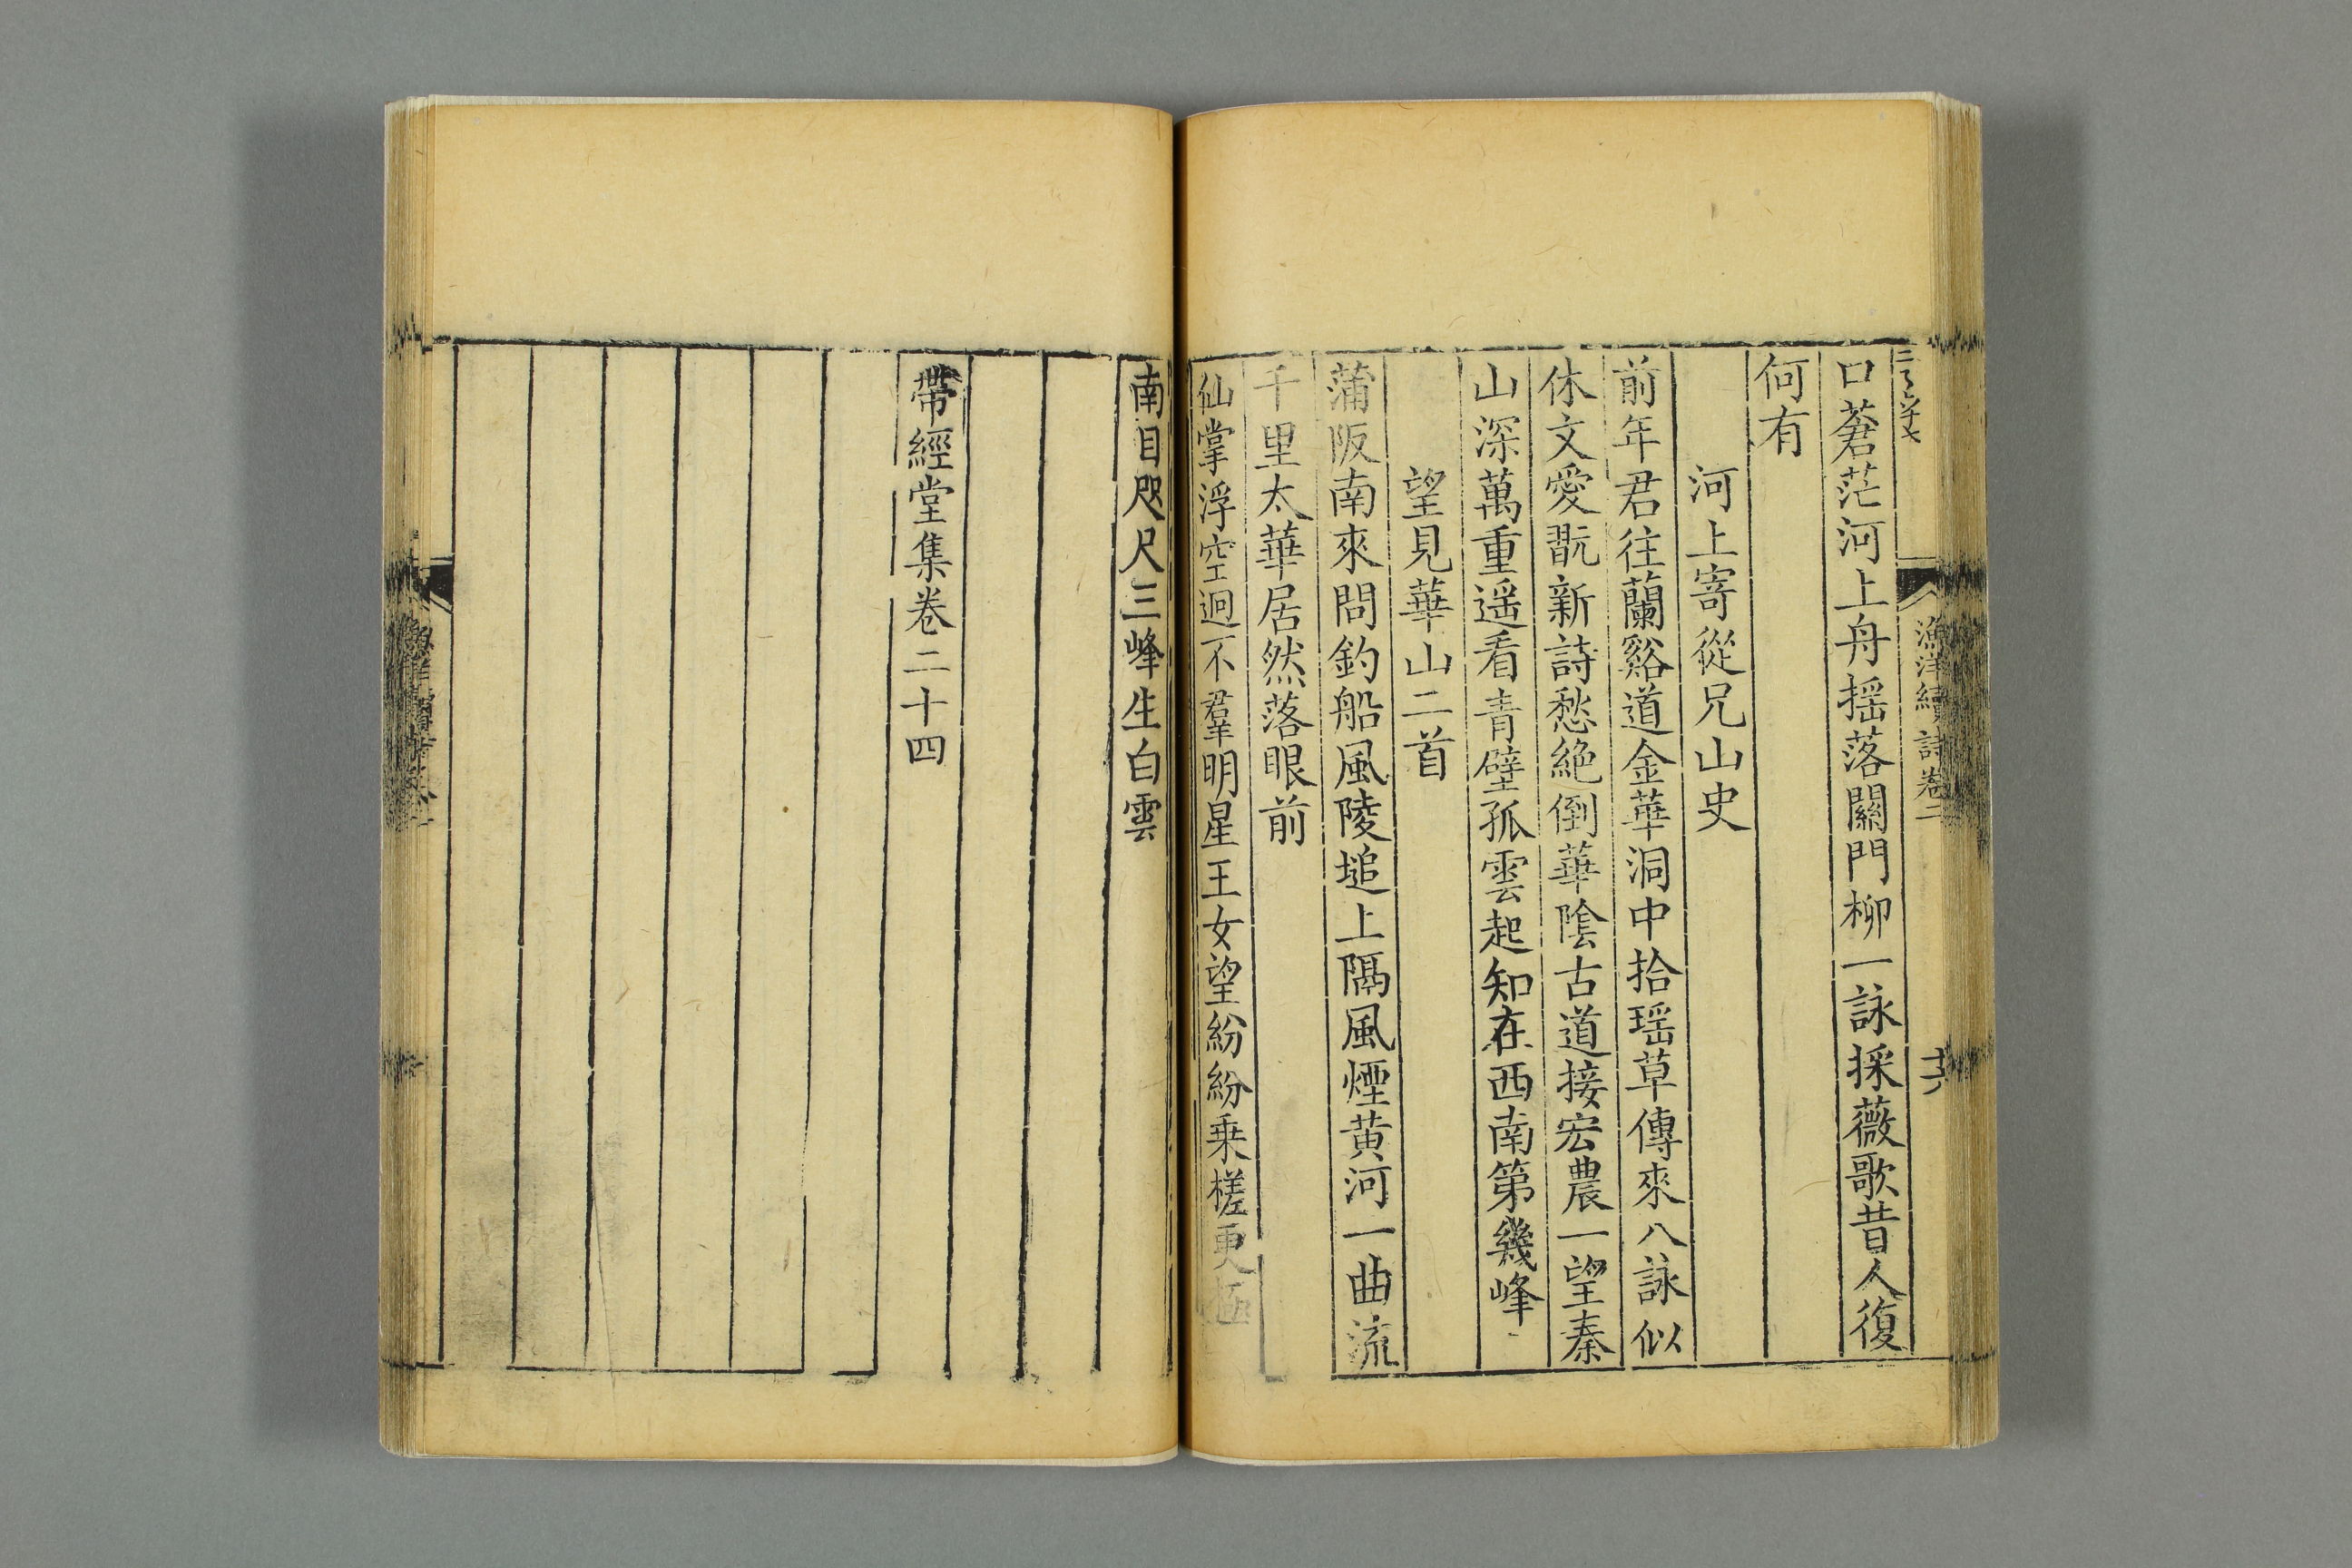 漁洋續詩卷二
口蒼茫河上舟摇落關門柳一詠採薇歌昔人復
何有
河上寄從兄山史
前年君往蘭谿道金華洞中拾瑶草傳來八詠似
休文愛翫新詩愁絶倒華陰古道接宏農一望秦
山深萬重遥看青壁孤雲起知在西南第幾峰
望見華山二首
蒲阪南來問釣船風陵堆上隔風煙黄河一曲流
千里太華居然落眼前
仙掌浮空迥不羣明星玉女望紛紛乗槎更
南目咫尺三峰生白雲
帶經堂集卷二十四